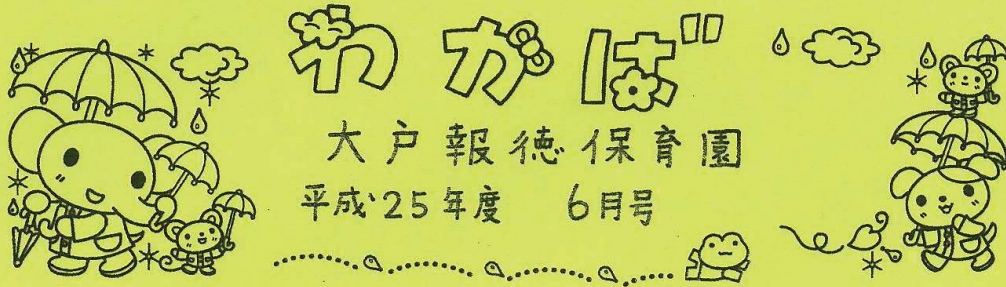 わかば
大戸報徳保育園
平成25年度 6月号